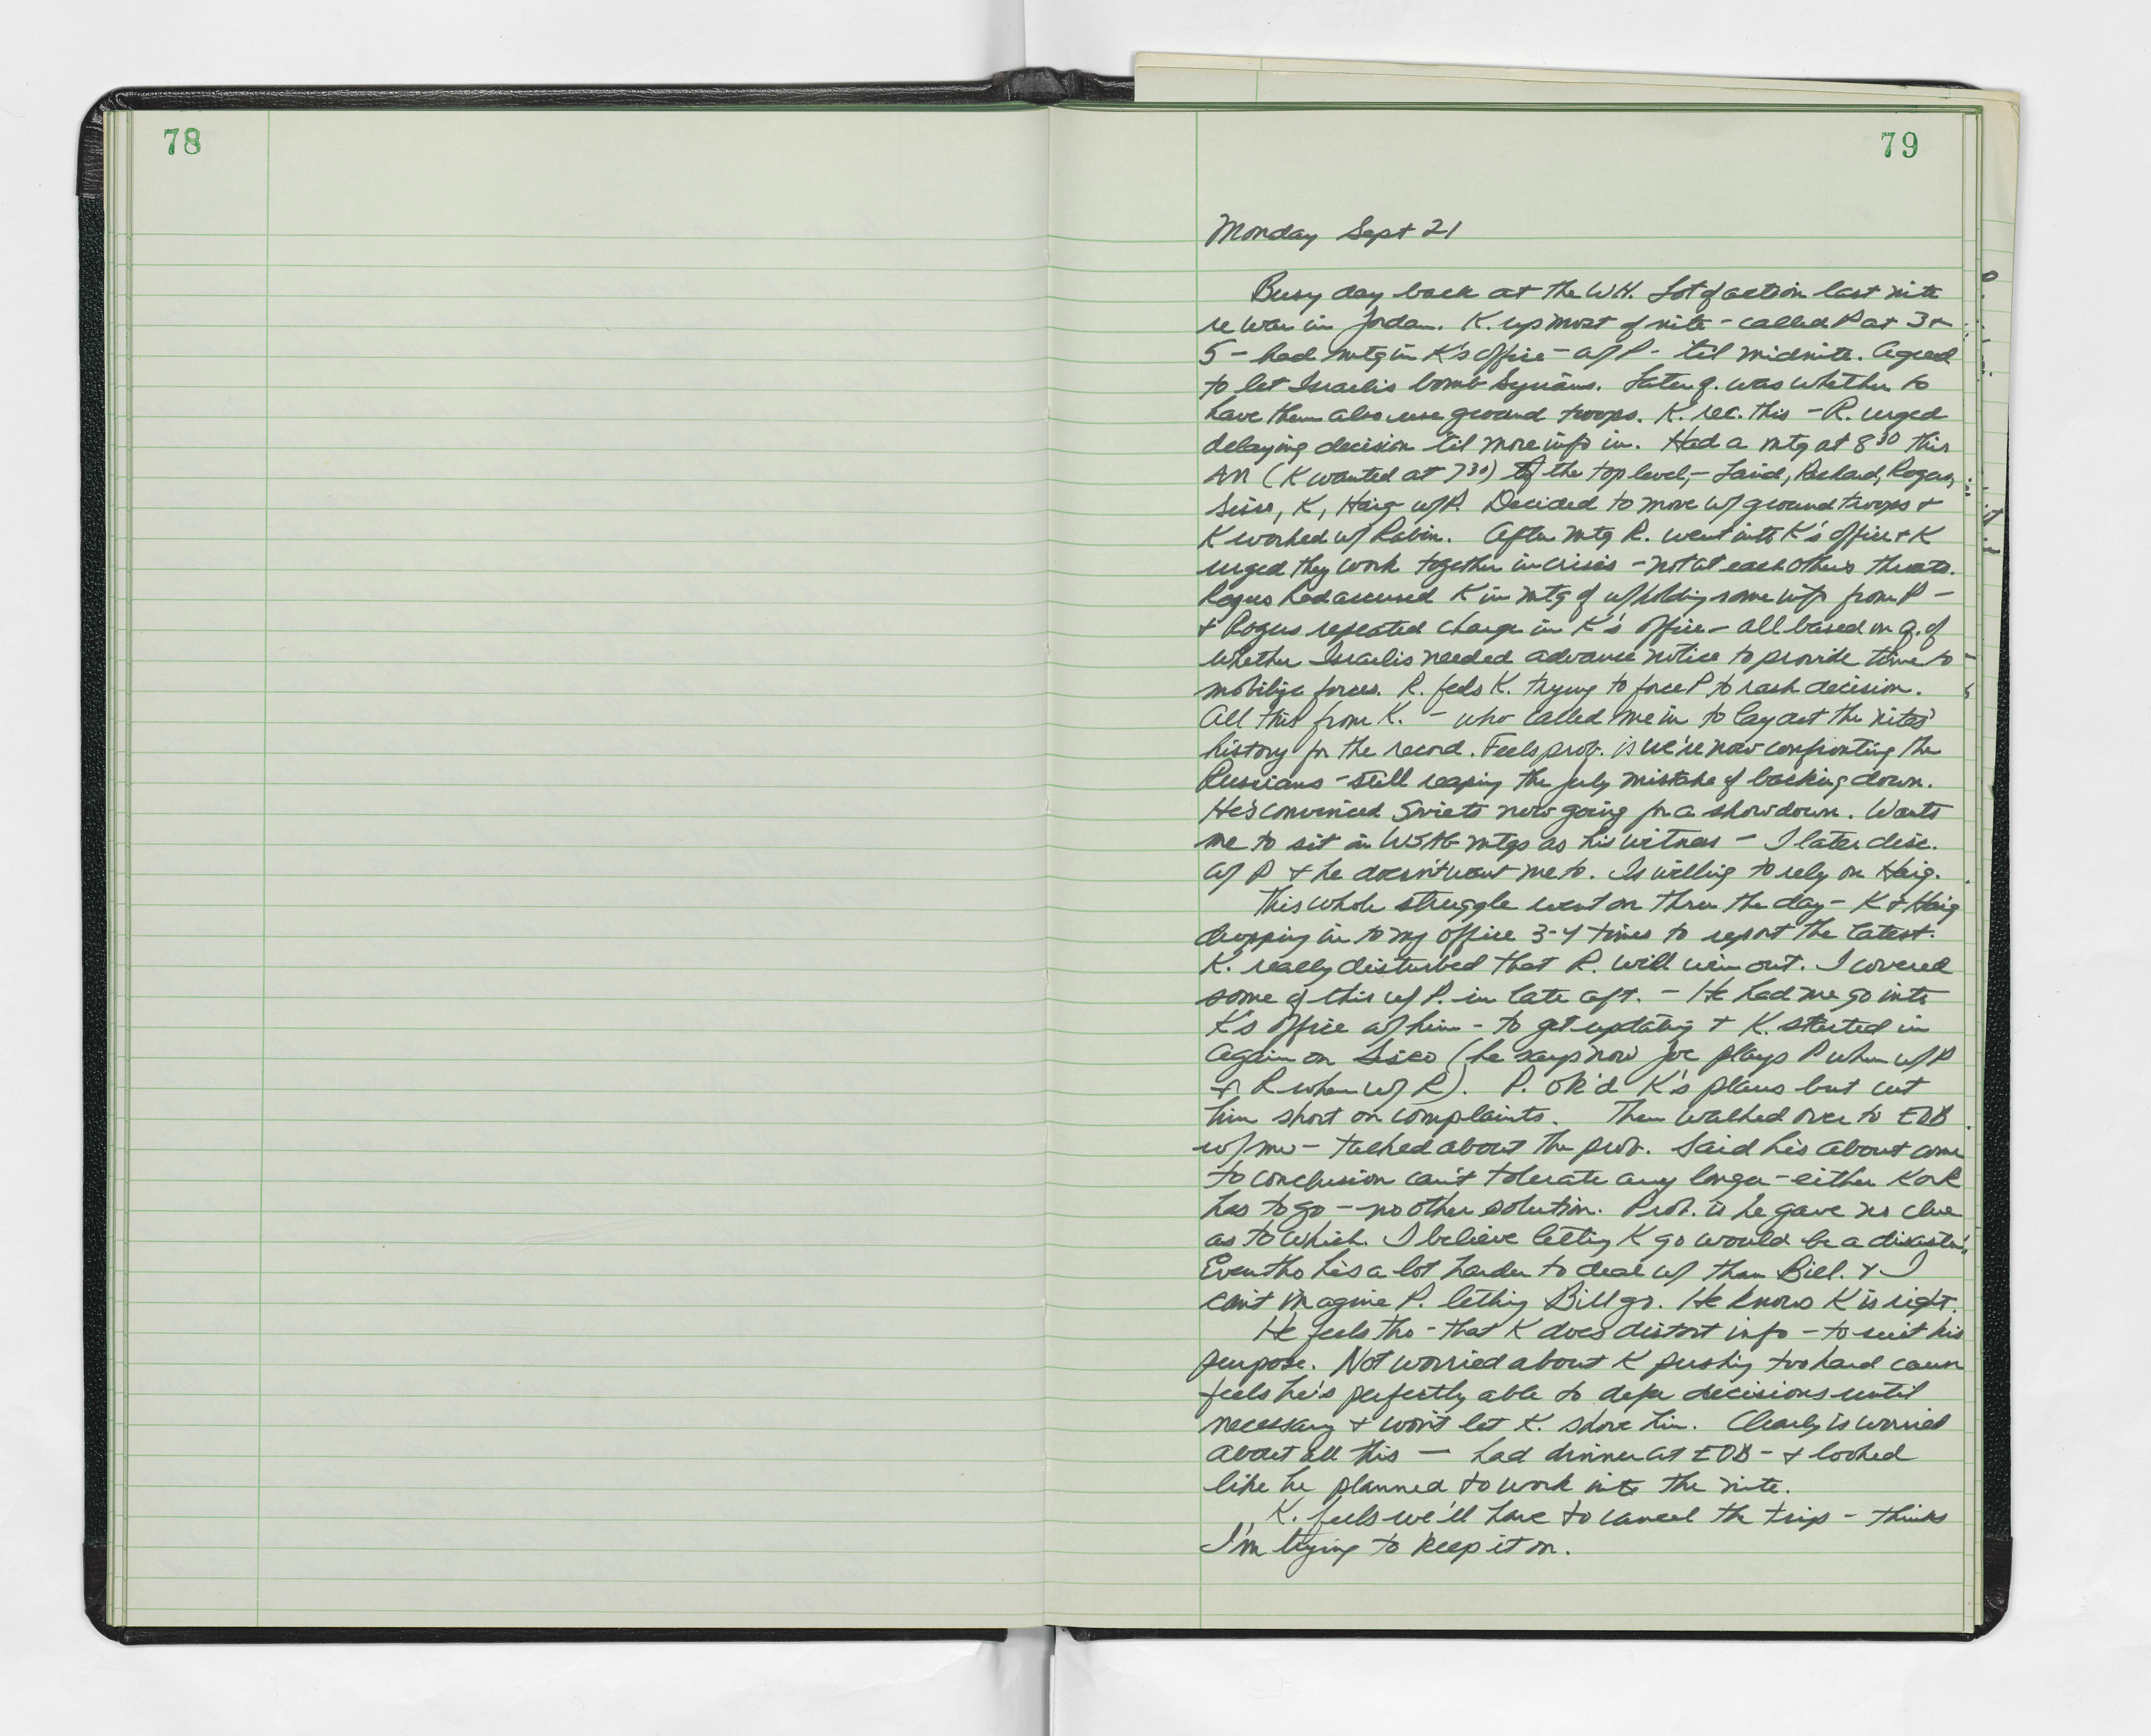 78
79
Monday Sept 21
Busy day back at the WH. Lot of action last nite
re war in Jordan. K. up most of nite - called P at 3 +
5 - had mtg in K's office - w/ P - 'til midnite. Agreed
to let Israelis bomb Syrians. Later q. was whether to
have them also use ground troops. K. rec. this - R. urged
delaying decision 'til more info in. Had a mtg at 8 30 this
AM (K wanted at 730) of the top level, - Laird, Packard, Rogers,
Sisco, K, Haig w/P. Decided to move w/ ground troops +
K worked w/ Rabin. After mtg R. went into K's office + K
urged they work together in crisis - not at each others throats.
Rogers had accused K in mtg of w/holding some info from P -
+ Rogers repeated charge in K's office - all based on q. of
whether Israelis needed advance notice to provide time to
mobilize forces. R. feels K. trying to force P to rash decision.
All this from K. - who called me in to lay out the nites'
history for the record. Feels prob. is we're now confronting the
Russians - still reaping the July mistake of backing down.
He's convinced Soviets now going for a showdown. Wants
me to sit in WSAG mtgs as his witness - I later disc.
w/ P + he doesn't want me to. Is willing to rely on Haig.
This whole struggle went on thru the day - K + Haig
dropping in to my office 3-4 times to report the latest.
K. really disturbed that R. will win out. I covered
some of this w/ P. in late aft. - He had me go into
K's office w/ him - to get updating + K. started in
again on Sisco (he says now Joe plays P when w/P
+ R when w/ R). P. OK'd K's plans but cut
him short on complaints. Then walked over to EOB
w/ me - talked about the prob. Said he's about come
to conclusion can't tolerate any longer - either K or R
has to go - no other solution. Prob. is he gave no clue
as to which. I believe letting K go would be a disaster.
Even tho he's a lot harder to deal w/ than Bill. + I
can't imagine P. letting Bill go. He knows K is right.
He feels tho - that K does distort info - to suit his
purpose. Not worried about K pushing too hard cause
feels he's perfectly able to defer decisions until
necessary + won't let K. shove him. Clearly is worried
about all this - had dinner at EOB - + looked
like he planned to work into the nite.
K. feels we'll have to cancel the trip - thinks
I'm trying to keep it on.